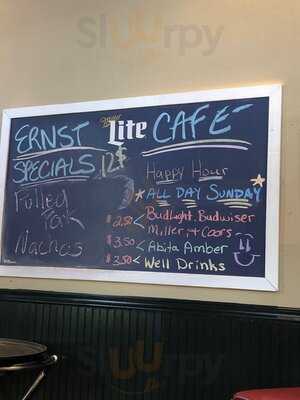 Sluurpy
ERNST Lite CAFE
SPECIALS 12
Pulled
Pork
Nachos
Happy Hour
ALL DAY SUNDAY
$2.50 < Budlight, Budwiser
Miller, + Coors
$3.50 < Abita Amber
$3.50 < Well Drinks
Sluurpy